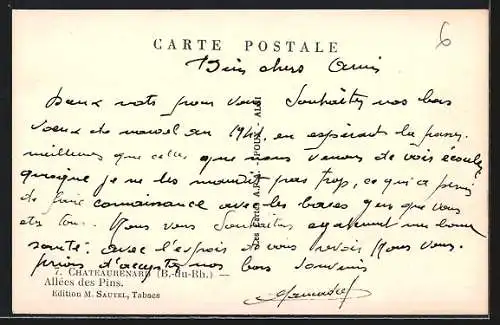 CARTE POSTALE
6
Bien chers Amis
Deux mots pour vous Souhaiter nos bons
voeux de nouvel an 1941, en espérant la
meilleures que celles que nous venons de voir écouler
quoique je ne les maudit pas trop, ce qui a permis
de faire connaissance avec les
Nous vous Souhaitons également une bonne
santé. avec l'espoir de vous revoir Nous vous
prions d'accepter nos bons souvenirs
7. CHATEAURENARD (B.-du-Rh.) —
Allées des Pins.
Edition M. SAUTEL, Tabacs
Les Editions A.P.A. - POUX - ALBI